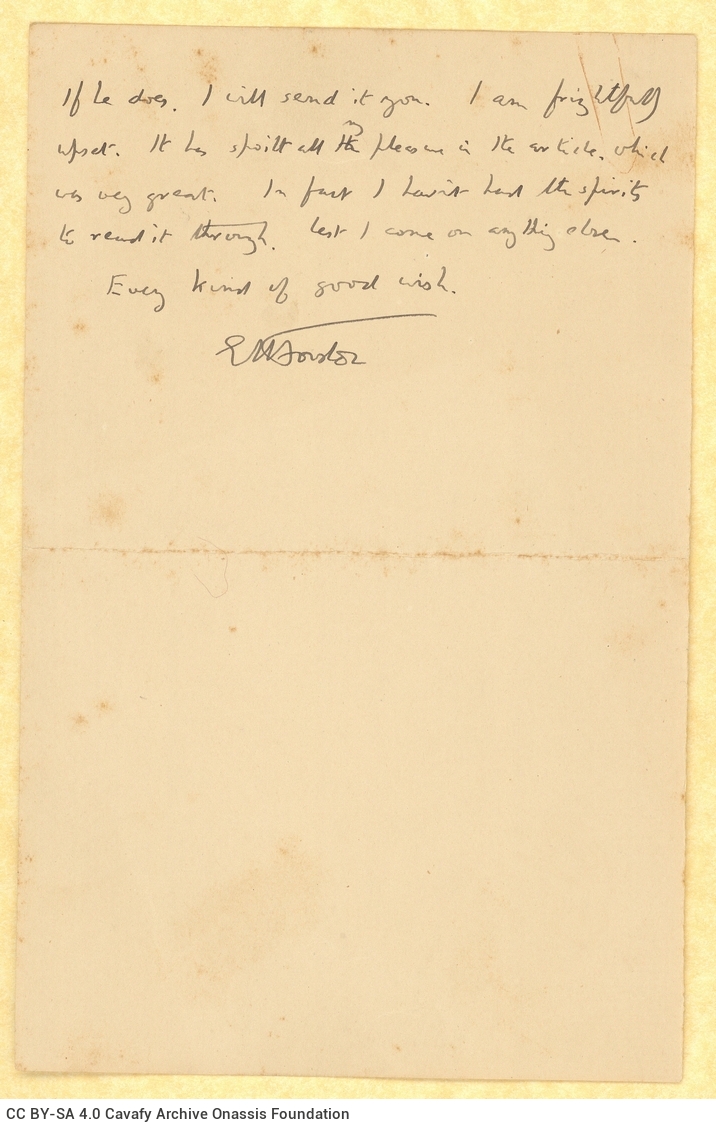 If he does, I will send it you. I am frightfully
upset. It has spoilt all my the pleasure in the article, which
was very great. In fact I havn't had the spirits
to read it through, lest I come on anything else.
Every kind of good wish.
EMForster
CC BY-SA 4.0 Cavafy Archive Onassis Foundation